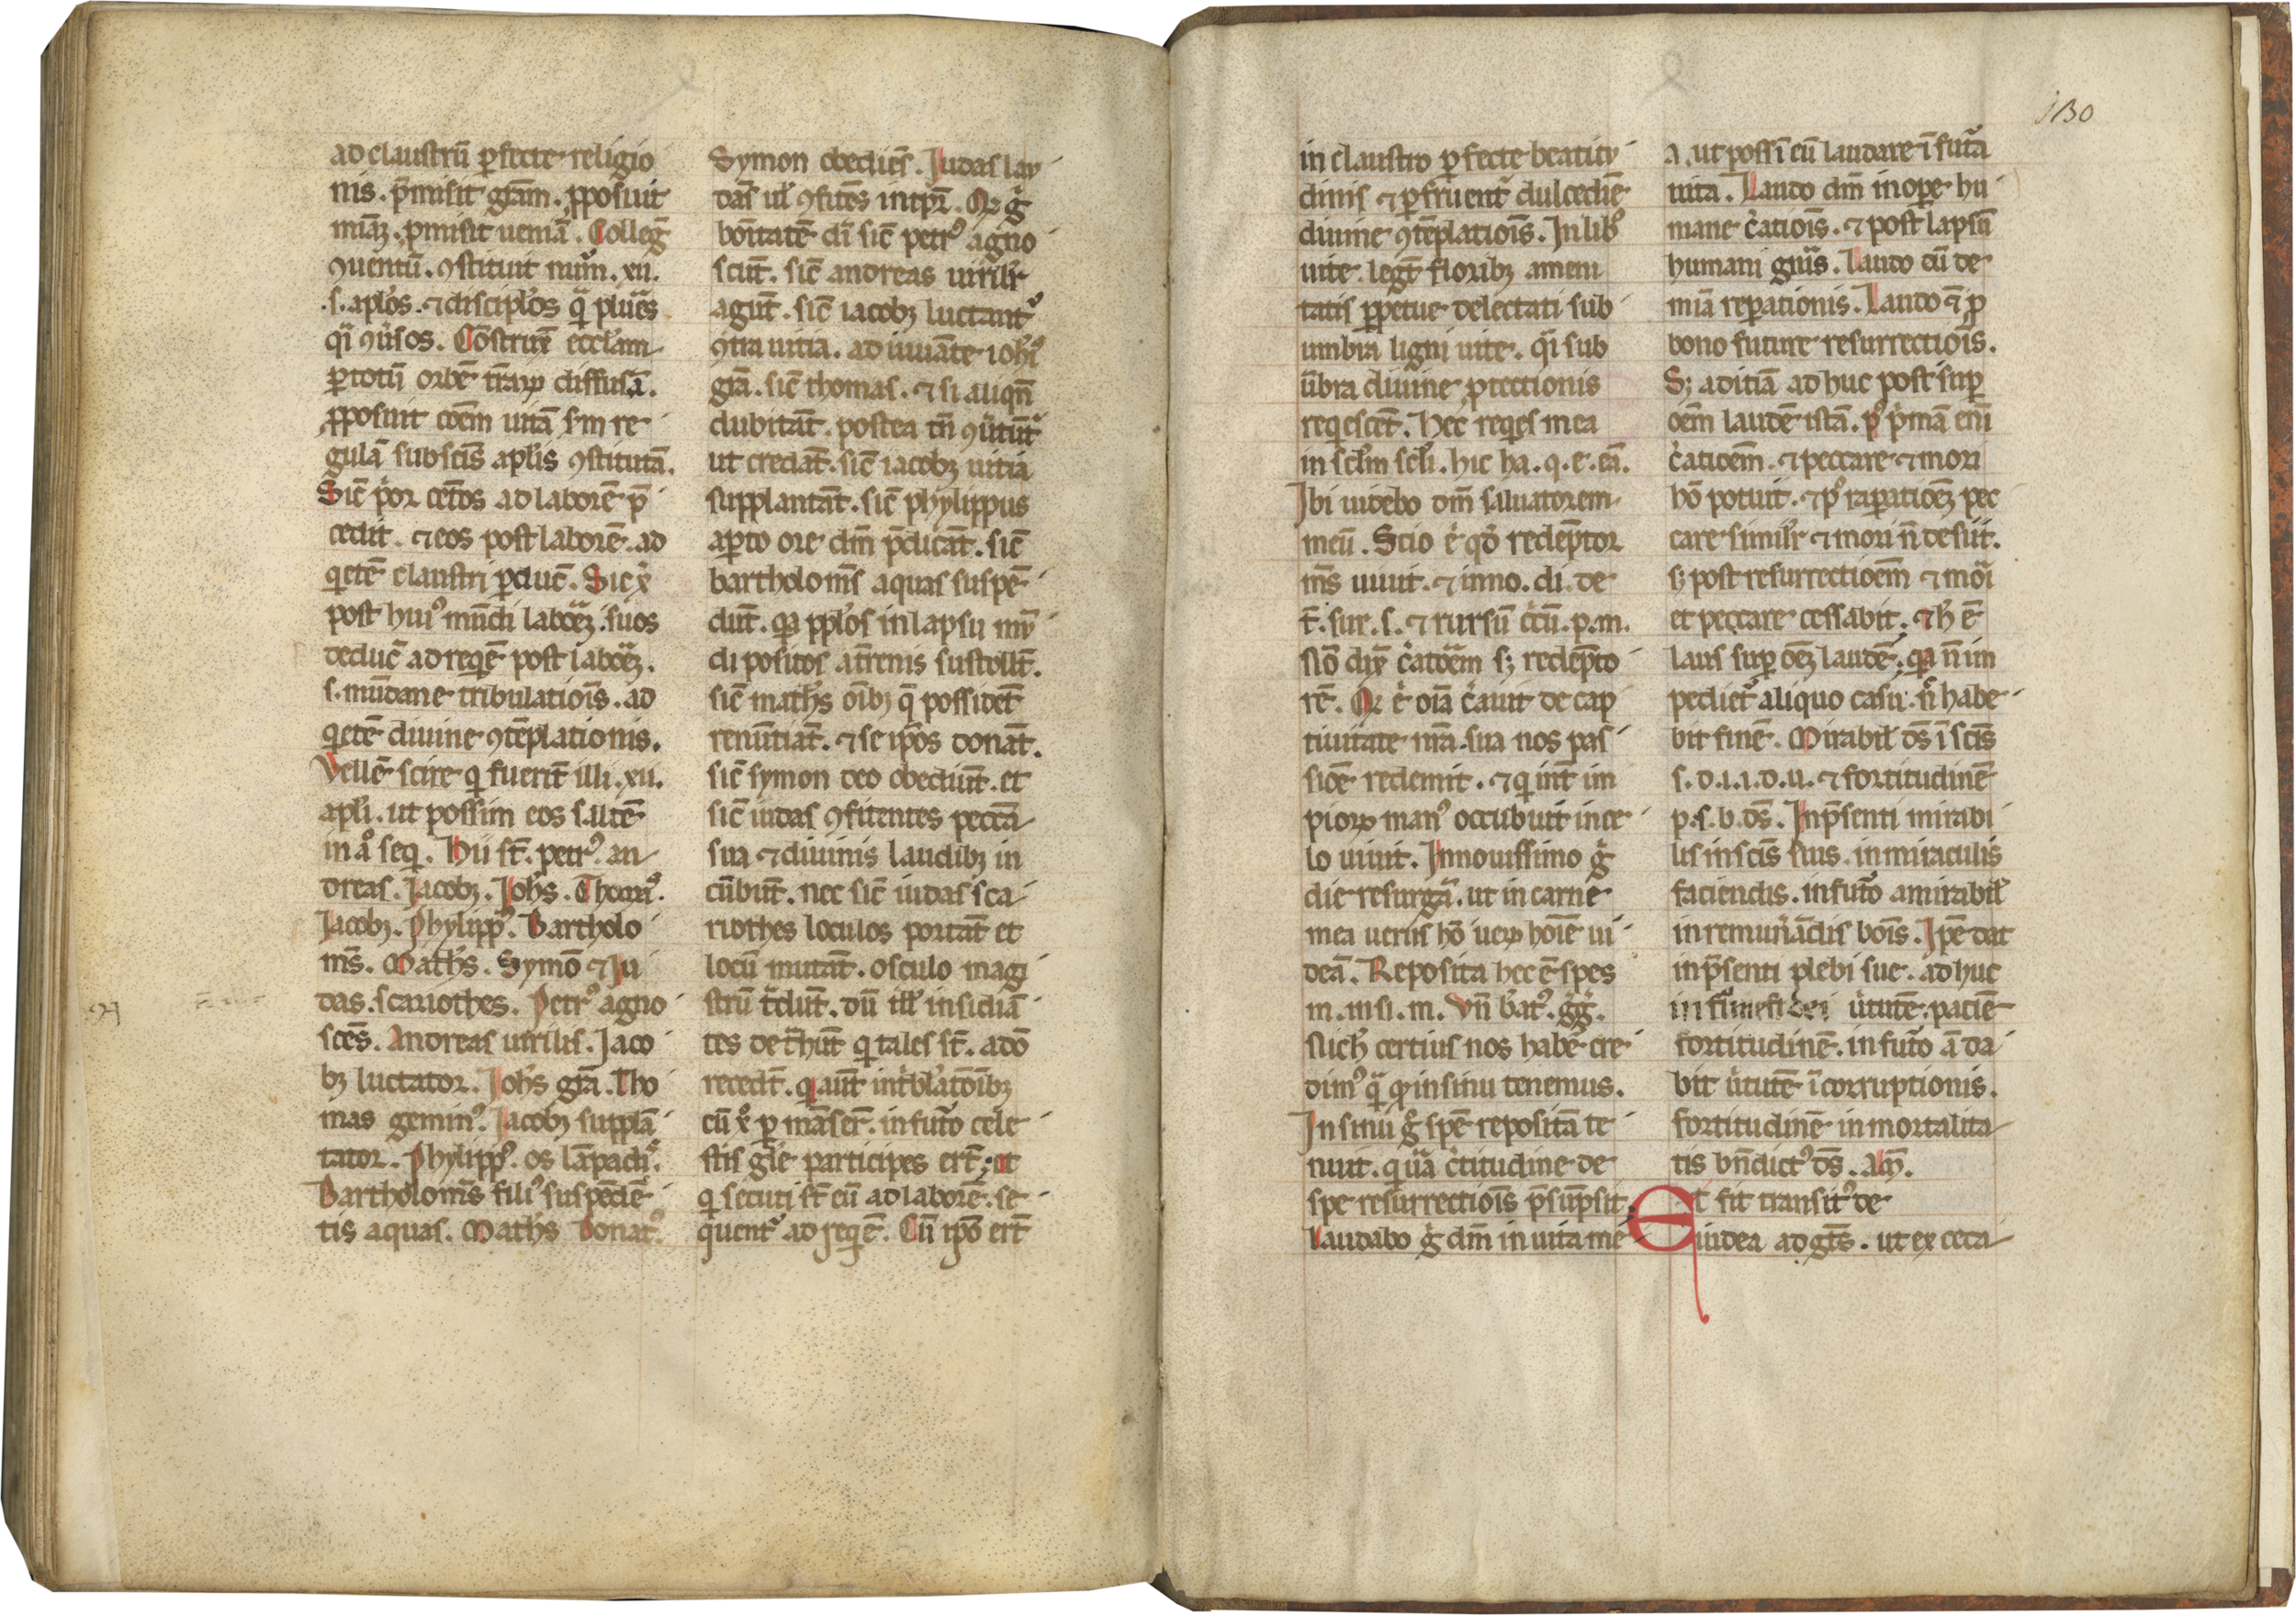 ad claustrū ꝑfecte religio
nis. p̄misit gr̄am. ꝓposuit
miāꝫ. ꝓmisit ueniā. Colleḡ
ꝯuentū. ꝯstituit nūm. xii.
.s. apl̓os. ⁊ disciplos qͣ plures
qͣi ꝯuͥsos. Cōstrux̄ eccl̓am
ꝑ totū orbē tr̄aꝝ diffusā.
ꝓposuit cōem uitā sm̄ re
gulā sub scīs apl̓is ꝯstitutā.
Sic̄ pͥor cet̄os ad laborē p̄
cedit. ⁊ eos post laborē. ad
qͥetē claustri ꝑducͥ. Sic xͨ
post huiꝰ mūdi laboreꝫ. suos
deducͥ ad reqͥē post laboreꝫ.
s. mūdane tribulatiōis. ad
qͥetē diuine ꝯtēplationis.
Vellē scire qͥ fuerīt illi. xii.
apl̓i. ut possim eos saltē
in aͦ seqͥ. Hii st̄. petrꝰ. an
dreas. Jacobꝫ. Joh̓s. Thomꝰ.
Jacobꝫ. Phylippꝰ. Bartholo
mꝰs. Math̓s. Symō ⁊ Ju
das. scariothes. Petrꝰ agno
scēs. Andreas uirilis. Jaco
bꝫ luctator. Joh̓s gr̄a. Tho
mas geminꝰ. Jacobꝫ supplā
tator. Phylippꝰ. os lāpadꝰ.
Bartholomꝰs filiꝰ suspēdē
tis aquas. Math̓s donatꝰ.
Symon obediēs. Judas lau
dās ul̓ ꝯfitēs int̓p̄r. Qꝫ gͦ
bōitatē di sic̄ petrꝰ agno
scūt. sic̄ andreas uirilr̄
agūt. sic̄ iacobꝫ luctantͬ
ꝯtra uitia. ad iuuāte ioh̓i
gr̄a. sic̄ thomas. ⁊ si aliqn̄
dubitāt. postea tn̄ ꝯuertūtͬ
ut credāt. sic̄ iacobꝫ uitia
supplantāt. sic̄ phylippus
aꝑto ore dm̄ p̄dicāt. sic̄
bartholomꝰs aquas suspē
dūt. qͥa ppl̓os in lapsu mū
di positos at̓renis sustollt̄.
sic̄ math̓s oībꝫ q̄ possidēt
renūtiāt. ⁊ se ip̄os donāt.
sic̄ symon deo obediūt. et
sic̄ iudas ꝯfitentes peccā
sua ⁊ diuinis laudibꝫ in
cūbūt. nec sic̄ iudas sca
riothes loculos portāt et
locū mutāt. osculo magi
strū tͣdūt. dū ill̓ insidiā
tes det̓hūt qͥ tales st̄. a dō
recedt̄. qͥ aūt int̓bl̓atōibꝫ
cū xͦ ꝑ māserͥt. in futͦo cele
stis gl̓e participes ert̄; ut
qͥ secuti st̄ eū ad laborē. se
quentͬ ad reqͥē. Cū ip̄o ert̄
130
in claustro ꝑfecte beatitu
dinis ⁊ ꝑfruentͬ dulcedīe
diuine ꝯtēplatiōis. In libͦ
uite. legt̄ floribꝫ ameni
tatis ꝑpetue delectati sub
umbra ligni uite. qͣi sub
ūbra diuine ꝓtectionis
reqͥescēt. Hec reqͥes mea
in sclm̄ scl̓i. hic ha. q. e. eā.
Ibi uidebo dm̄ saluatorem
meū. Scio eͥ qd̓ redēptor
mꝰs uiuit. ⁊ inno. di. de
t̄. sur. s. ⁊ rursū cc̄ū. p. m.
Nō dix̄ cͥatōem sꝫ redēpto
rē. Qꝫ eͥ oīa cͥauit de cap
tiuitate nr̄a sua nos pas
siōe redemit. ⁊ qͥ int̄ im
pioꝝ manꝰ occubuit in ce
lo uiuit. In nouissimo gͦ
die resurgā. ut in carne
mea uerus hō ueꝝ hoīē ui
deā. Reposita hec ē spes
m. in si. m. Vn̄ b̓atꝰ. gg̓.
Nich̓ certius nos habēͬ cre
dimꝰ qͣ qd̓ in sinu tenemus.
In sinu gͦ spē repositā te
nuit. qͥ uͣa cͥtitudine de
spe resurrectiōis p̄sūpsit.
Laudabo gͦ dm̄ in uita me
a. ut possī eū laudare ī futͣa
uita. Laudo dm̄ in opͥe hu
mane cͥatiōis. ⁊ post lapsū
humani giñis. Laudo eū de
mīa reparationis. Laudo ⁊ p
bono future resurrectiōis.
Sꝫ aditiā ad huc post sup̱
oēm laudē istā. pͦ pͥmā eni
cͥatiōem. ⁊ peccare ⁊ mori
hō potuit. ⁊ pͦ raꝑatioēꝫ pec
care similr̄ ⁊ mori n̄ desiit.
sꝫ post resurrectiōem ⁊ mori
et peccare cessabit. ⁊ h̓ ē
laus suꝑ oēꝫ laudē. qͥa n̄ im
pedietͬ aliquo casu. nͨ habe
bit finē. Mirabil̓ ds̄ ī scīs
s. d. i. i. d. u. ⁊ fortitudinē
p. s. b. ds̄. In p̄senti mirabi
lis in scīs suis. in miraculis
faciendis. in futͦo amirabil̓
in remunͥādis bōis. Ip̄e dat
in p̄senti plebi sue. ad huc
uͥtutē. patiē
fortitudinē. in futͦo ā da
bit uͥtutē ī corruptionis.
fortitudinē in mortalita
tis bn̄dictꝰ ds̄. Am̄.
Et fit transitꝰ de
iudea ad gētes. ut ex ceca